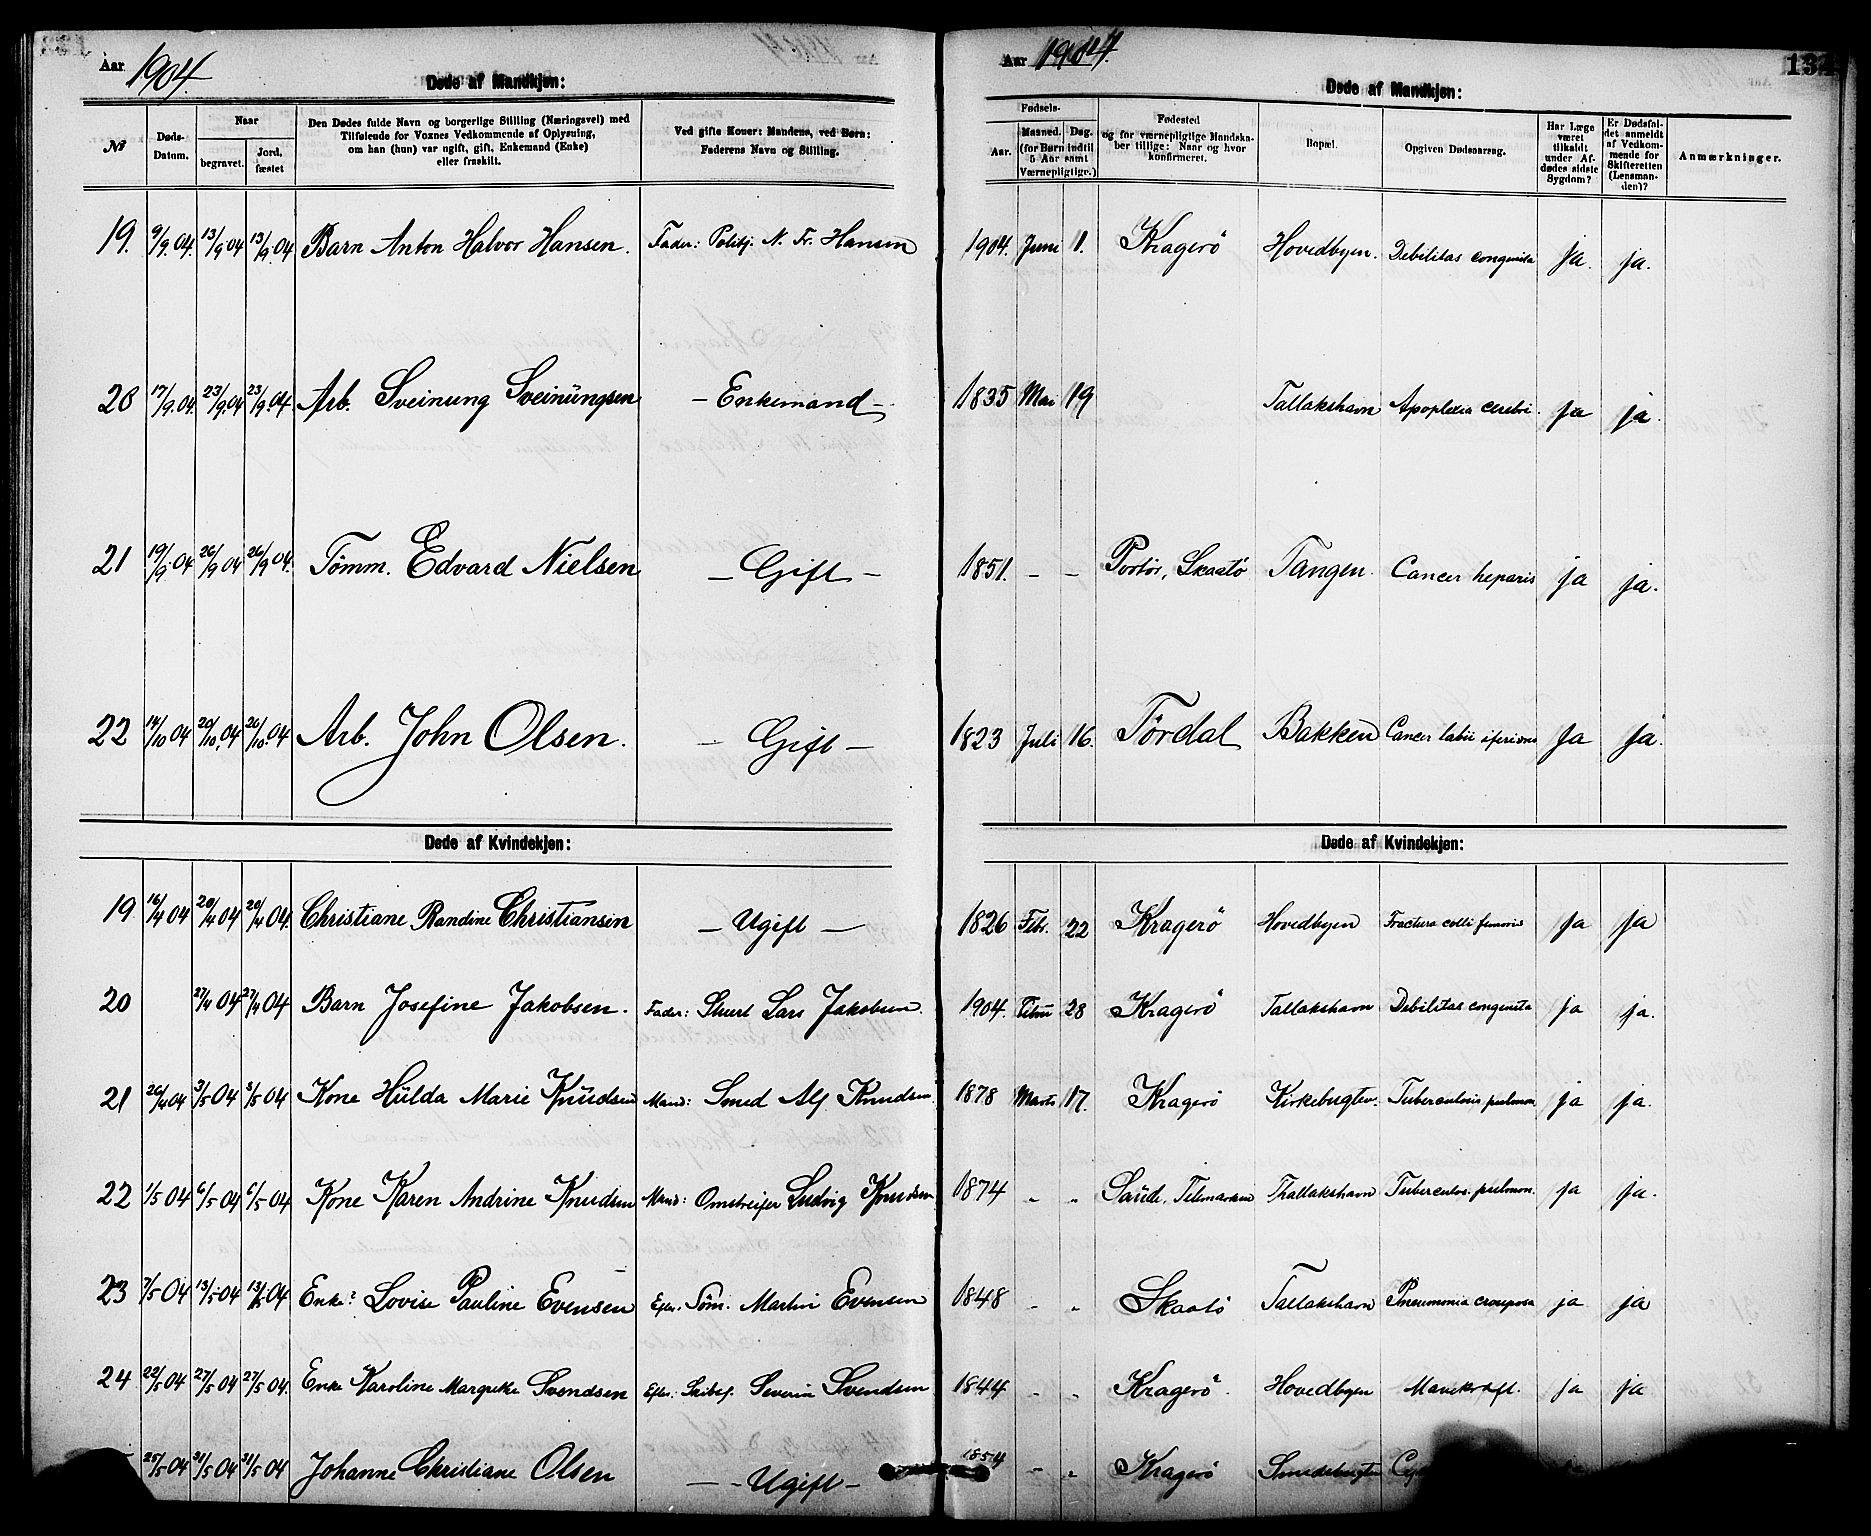 Aar 1904.
Døde af Mandkjøn:
Aar 1904.
Døde af Mandkjøn:
134
№
Døds-Datum.
Naar
begravet.
Jord, fæstet
Den Dødes fulde Navn og borgerlige Stilling (Næringsvei) med
Tilføiende for Voxnes Vedkommende af Oplysning,
om han (hun) var ugift, gift, Enkemand (Enke)
eller fraskilt.
Ved gifte Koner: Mandens, ved Børn:
Faderens Navn og Stilling.
Fødsels-
Aar.
Maaned. Dag.
(for Børn indtil
5 Aar samt
Værnepligtige.)
Fødested
og for værnepligtige Mandska-
ber tillige: Naar og hvor
konfirmeret.
Bopæl.
Opgiven Dødsaarsag.
Har Læge
været
tilkaldt
under Af-
dødes sidste
Sygdom?
Er Dødsfal-
det anmeldt
af Vedkom-
mende for
Skifteretten
(Lensman-
den)?
Anmærkninger.
19. 9/9.04. 13/9 04 13/9.04 Barn Anton Halvor Hansen. Fader: Politj. N. Fr. Hansen 1904. Juni 11. Kragerö Hovedbyen. Debilitas congenita ja. ja.
20 17/9.04. 23/9.04 23/9.04 Arb. Sveinung Sveinüngsen – Enkemand – 1835 Mai 19 Tallakshavn Apoplexia cerebri. ja ja.
21 19/9.04 26/9 04 26/9 04. Tömm. Edvard Nielsen – Gift – 1851. – – Portör, Skaatö Tangen. Cancer heparis ja ja.
22 14/10 04 20/10.04 20/10.04 Arb. John Olsen. – Gift – 1823 Juli 16. Tördal Bakken Cancer labii Ja Ja.
Døde af Kvindekjøn:
Døde af Kvindekjøn:
19 16/4 04 20/4 04 20/4 04. Christiane Randine Christiansen – Ugift – 1826 Febr. 22 Kragerö Hovedbyen Fractura colli femoris Ja Ja
20 27/4 04 27/4 04 Barn Josefine Jakobsen. Fader: Stuert Lars Jakobsen. 1904. 28 Kragerö Tallakshavn Debilitas congenita ja ja.
21 26/4 04 3/5 04 3/5 04 Kone Hülda Marie Knüdsen Mand: Smed Alf Knudsen. 1878 Marts 17. Kragerö Kirkebugten. Tuberculosis pulmon. ja ja.
22 1/5 04 6/5 04 6/5 04 Kone Karen Andrine Knudsen Mand: Omstreifer Ludvig Knudsen 1874 " " Saude, Telemarken Thallakshavn Tuberculos. pulmon. ja ja.
23 7/5 04 13/5 04 13/5 04 Enke: Lovise Pauline Evensen Efter. Töm. Martin Evensen 1848 – " Skaatö Tallakshavn Pneumonia crouposa ja ja
24 22/5 04 27/5 04 27/5 04. Enke Karoline Margreke Svendsen Efter. Skibsf. Severin Svendsen 1844 – " Kragerö. Hovedbyen Mavekræft. ja ja
25/5 04 31/5 04 31/5 04 Johanne Christiane Olsen – Ugift – 1854 – " Kragerö Smedebugten